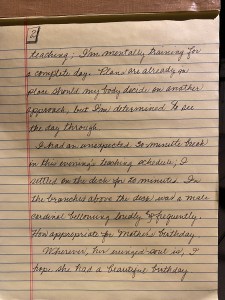 2
teaching; I'm mentally training for
a complete day. Plans are already in
place should my body decide on another
approach, but I'm determined to see
the day through.
I had an unexpected 30 minute break
in this evening's teaching schedule; I
settled on the deck for 20 minutes. In
the branches above the deck was a male
cardinal bellowing loudly & frequently.
How appropriate for Mother's birthday.
Wherever, her winged soul is, I
hope she had a beautiful birthday